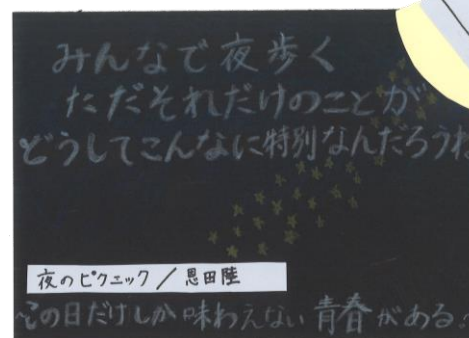 みんなで夜歩く
ただそれだけのことが
どうしてこんなに特別なんだろうね
夜のピクニック / 恩田陸
~この日だけしか味わえない青春がある~